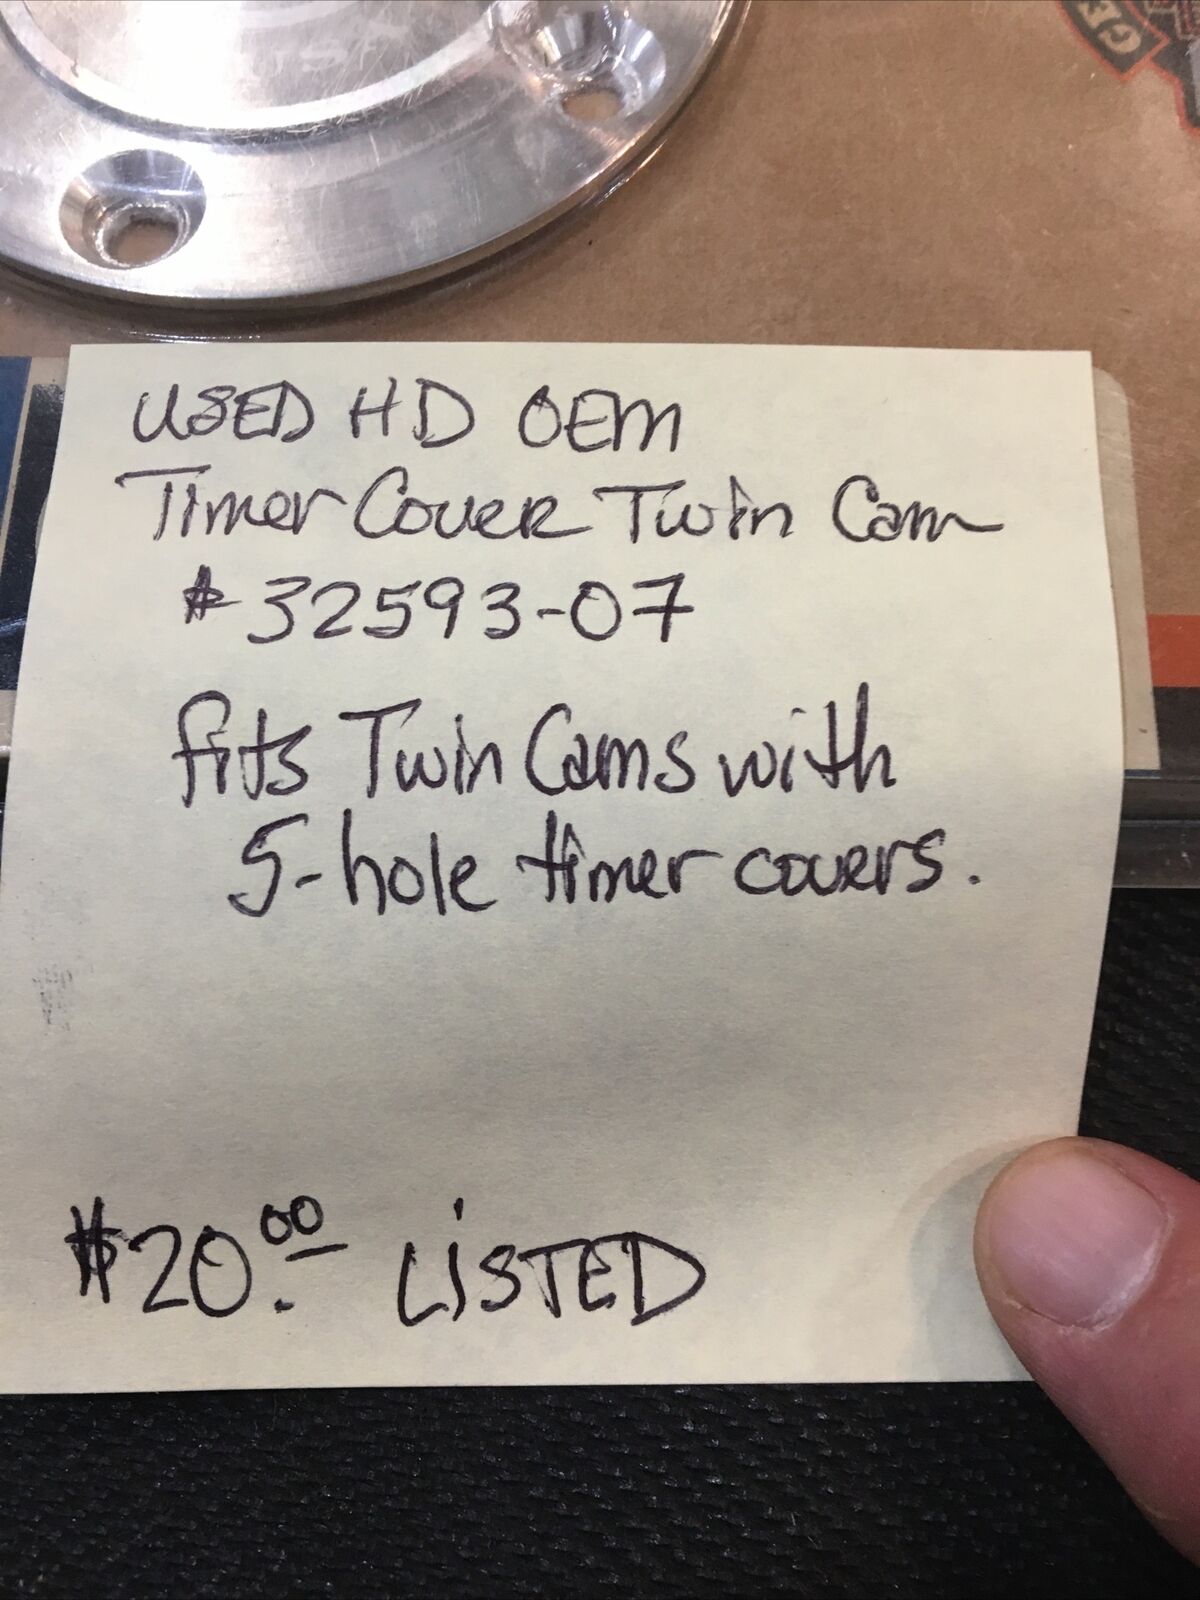 GE
USED HD OEM
Timer Cover Twin Cam
# 32593-07
fits Twin Cams with
5-hole timer covers.
$20.00 LiSTED